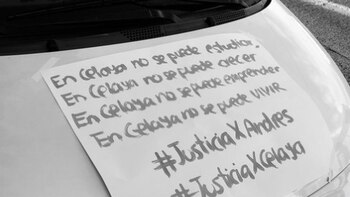 En Celaya no se puede estudiar.
En Celaya no se puede crecer
En Celaya no se puede emprender
En Celaya no se puede VIVIR
#JusticiaXAndres
#JusticiaXCelaya